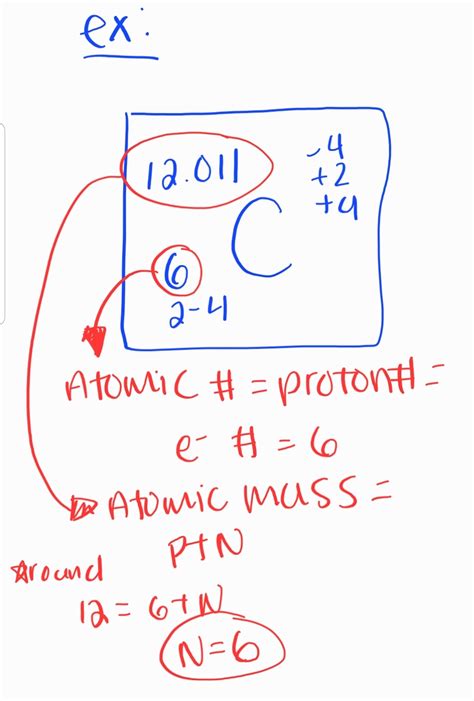 ex:
12.011
-4
+2
+4
C
6
2-4
Atomic # = proton# =
e- # = 6
Atomic mass =
P+N
*round
12 = 6+N
N=6